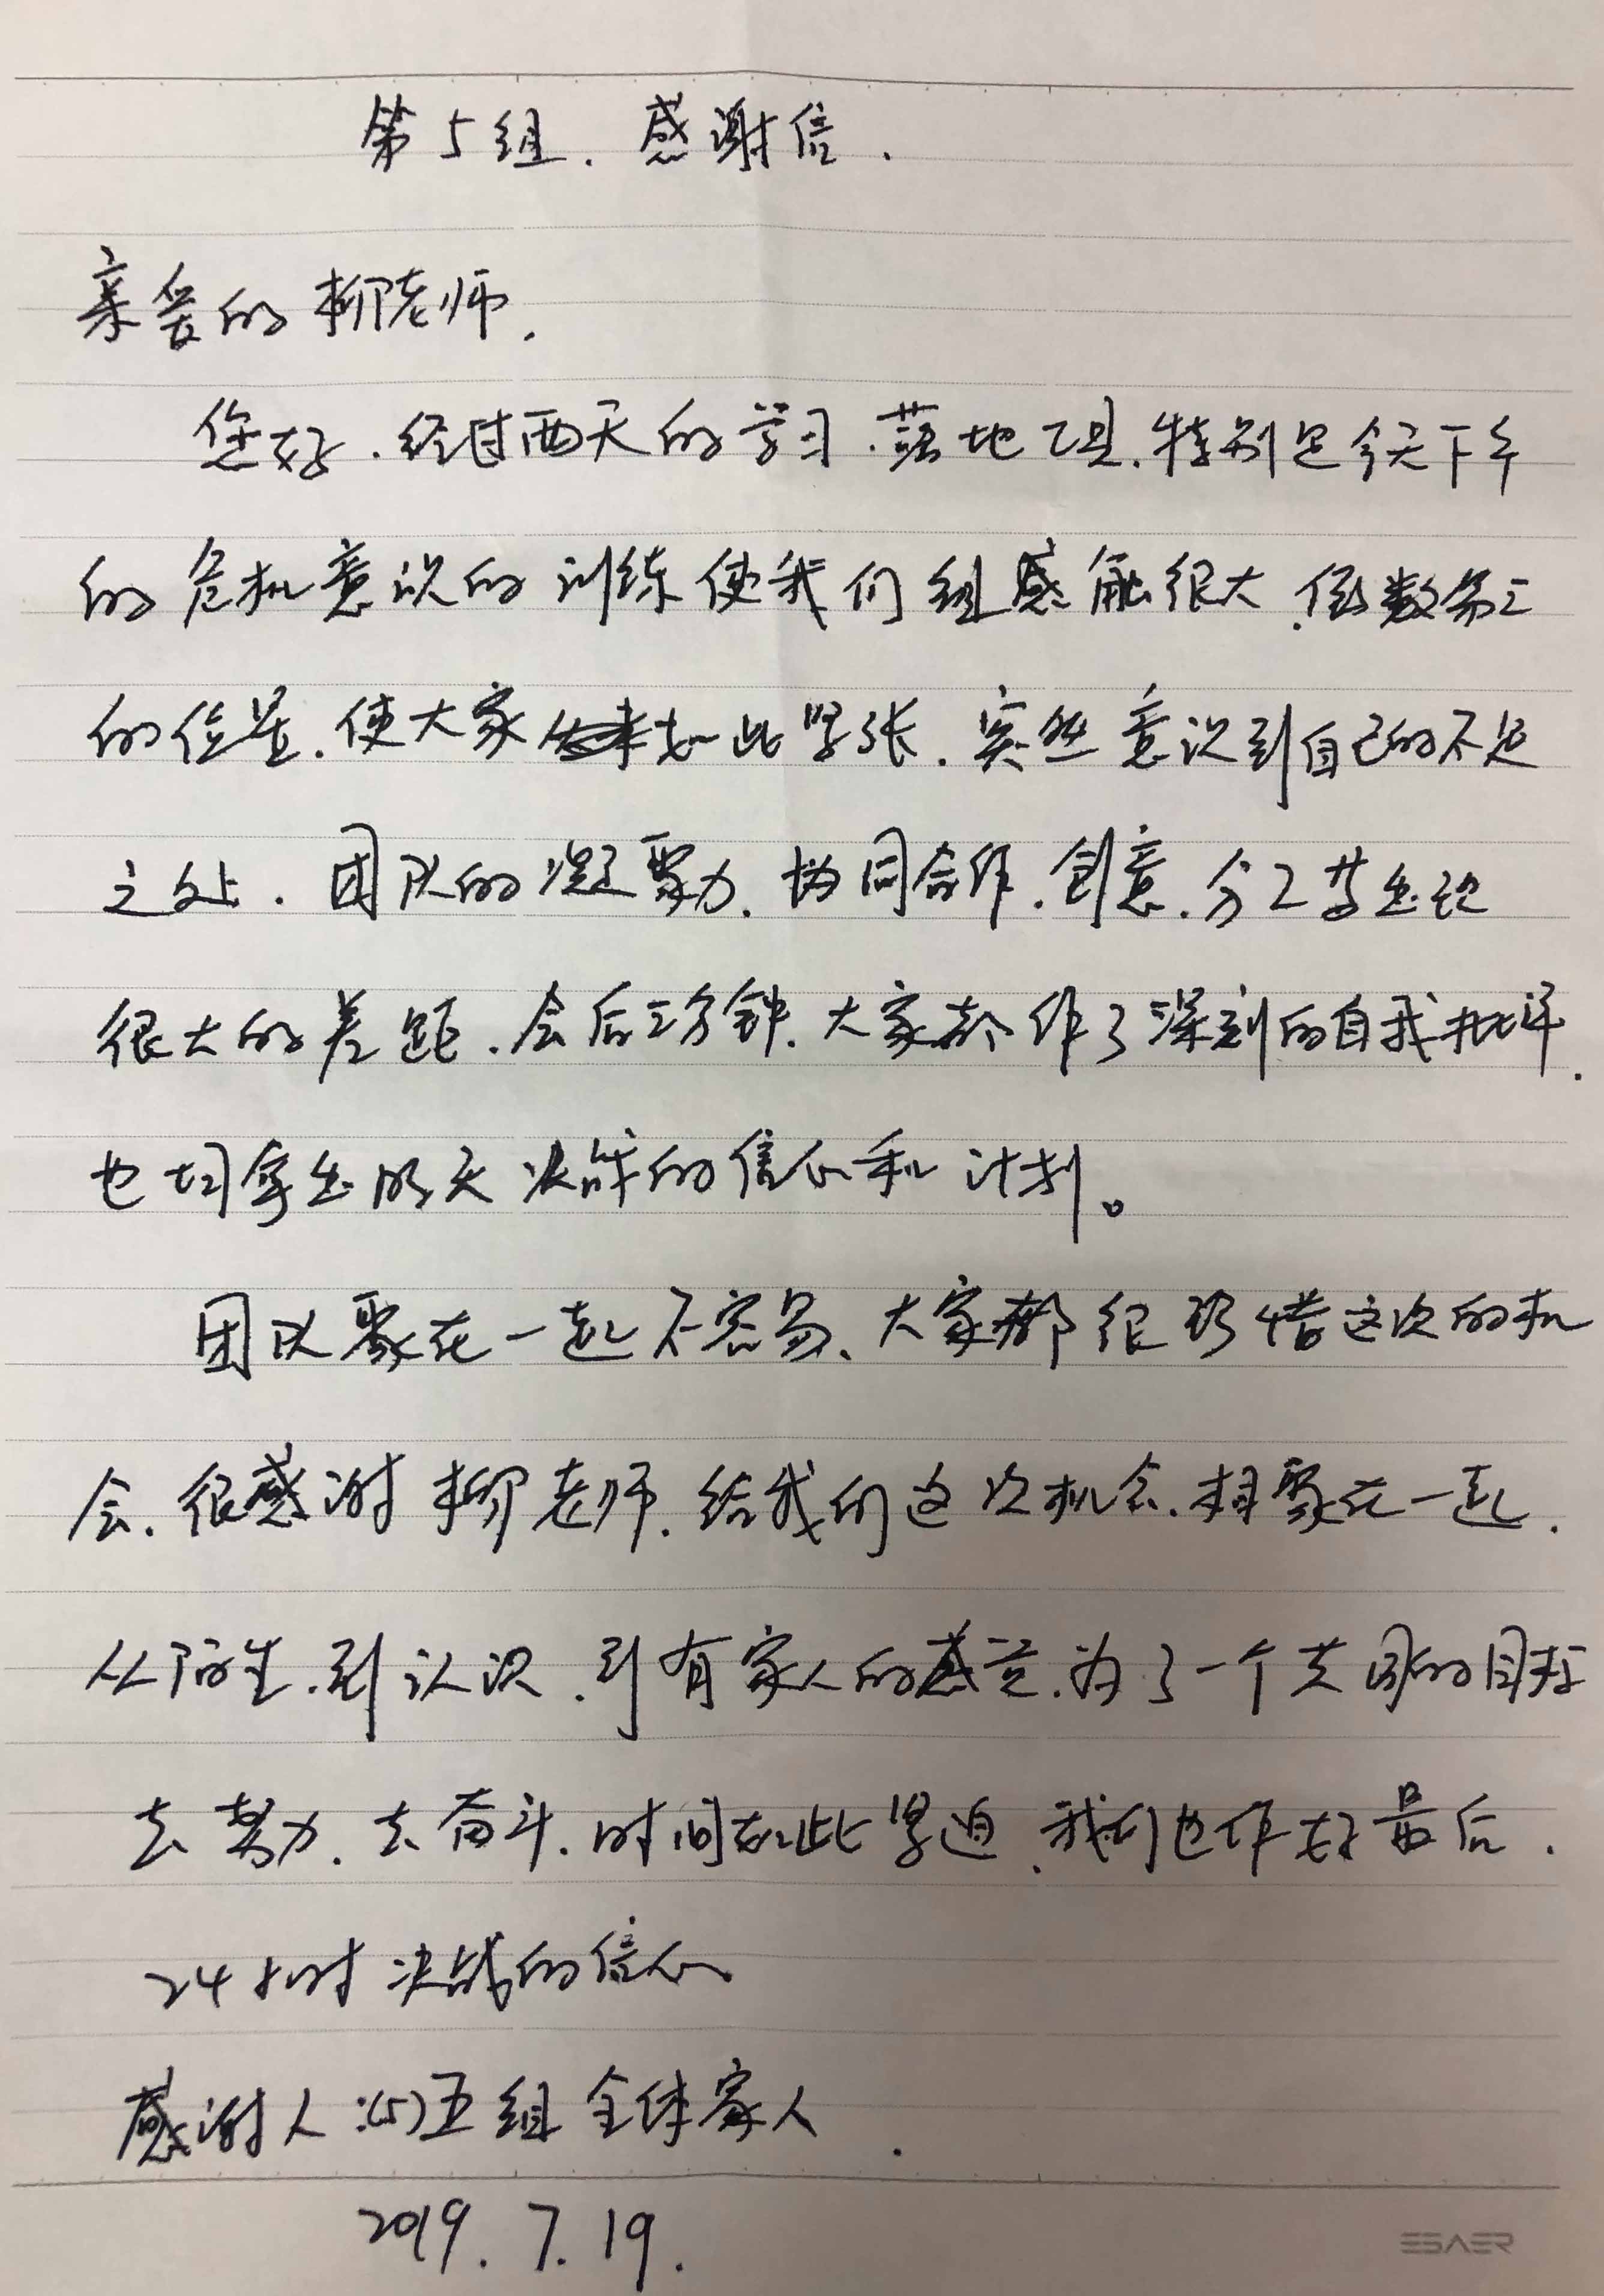 第5组.感谢信.
亲爱的柳老师.
您好.经过两天的学习.落地工具.特别是今天下午
的危机意识的训练使我们组感触很大.倒数第二
的位置.使大家如此紧张.突然意识到自己的不足
之处.团队的凝聚力.协同合作.创意.分工等出现
很大的差距.会后三分钟.大家都作了深刻的自我批评.
也切写出明天决战的信心和计划。
团队聚在一起不容易、大家都很珍惜这次的机
会.很感谢柳老师.给我们这次机会.相聚在一起.
从陌生.到认识.到有家人的感觉.为了一个共同的目标
去努力.去奋斗.时间如此紧迫.我们也作好最后.
24小时决战的信心
感谢人:(5)五组全体家人.
2019.7.19.
ESAER